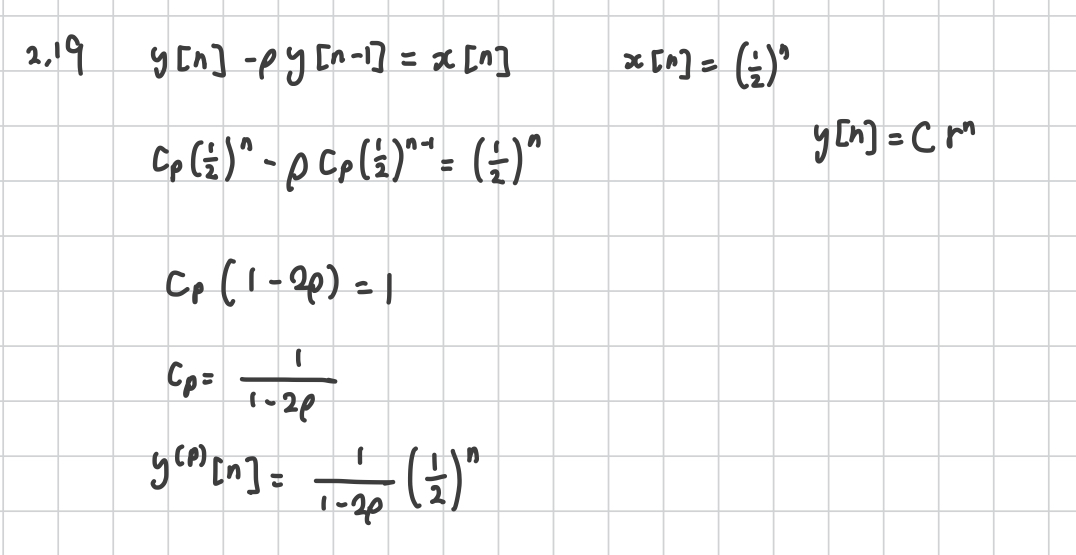 2.19 y[n] - ρ y[n-1] = x[n] x[n] = (1/2)^n
y[n] = C r^n
c_p (1/2)^n - ρ c_p (1/2)^{n-1} = (1/2)^n
c_p (1 - 2ρ) = 1
c_p = 1/(1-2ρ)
y^{(p)}[n] = 1/(1-2ρ) (1/2)^n